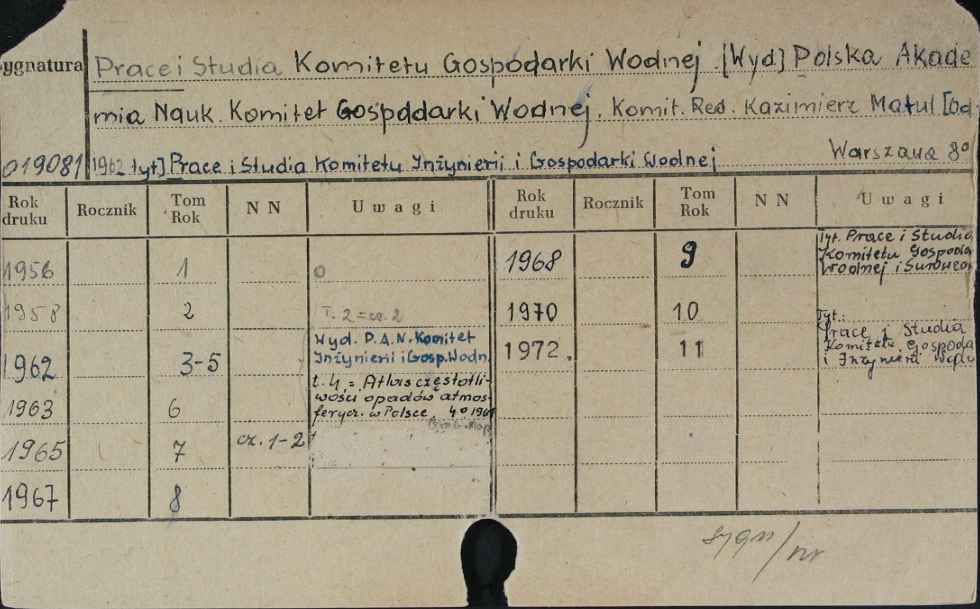 ygnatura Prace i Studia Komitetu Gospodarki Wodnej. [Wyd] Polska Akade
mia Nauk. Komitet Gospodarki Wodnej. Komit. Red. Kazimierz Matul [od
019081 1962 tyt] Prace i Studia Komitetu Inżynierii i Gospodarki Wodnej Warszawa 8°
Rok druku Rocznik Tom Rok N N Uwagi Rok druku Rocznik Tom Rok N N Uwagi
1956 1 0
1958 2 T. 2 = cz. 2
1962 3-5 Wyd. P.A.N. Komitet
Inżynierii i Gosp. Wodn.
1963 6 t. 4 = Atlas częstotli-
wości opadów atmos-
ferycz. w Polsce 4° 196
1965 7 cz. 1-2
1967 8
1968 9 Tyt. Prace i Studia
Komitetu Gospoda
Wodnej i Surowco
1970 10
1972. 11 Tyt.:
Prace i Studia
Komitetu Gospoda
i Inżynierii
sygn/nr